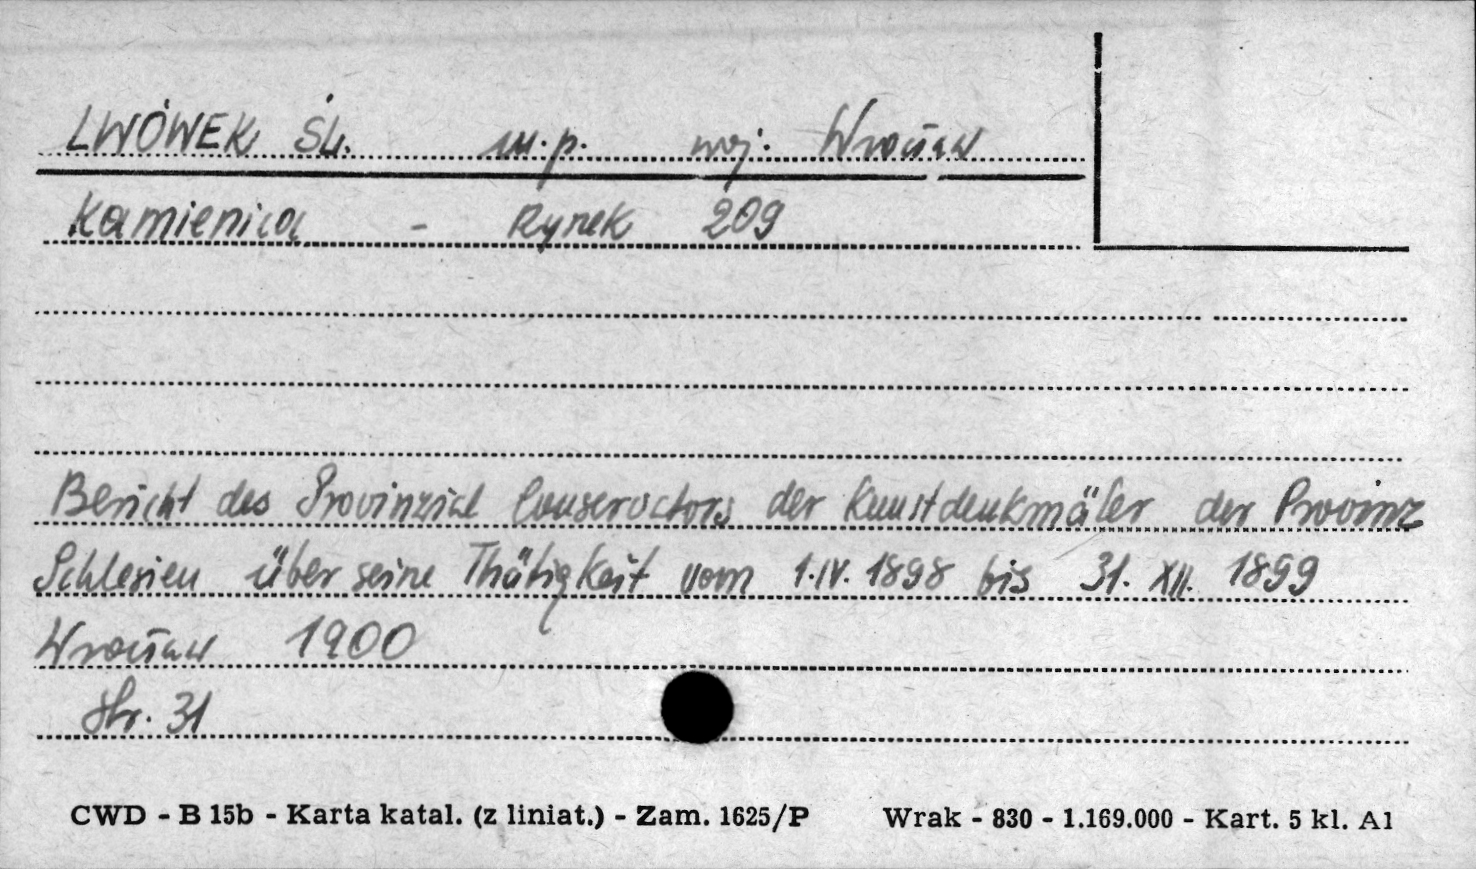 LWÓWEK ŚL. m.p. woj. Wrocław
Kamienica - Rynek 209
Bericht des Provinzial Conservators der Kunstdenkmäler der Provinz
Schlesien über seine Thätigkeit vom 1.IV. 1898 bis 31. XII. 1899
Wrocław 1900
str. 31
CWD - B 15b - Karta katal. (z liniat.) - Zam. 1625/P Wrak - 830 - 1.169.000 - Kart. 5 kl. A1